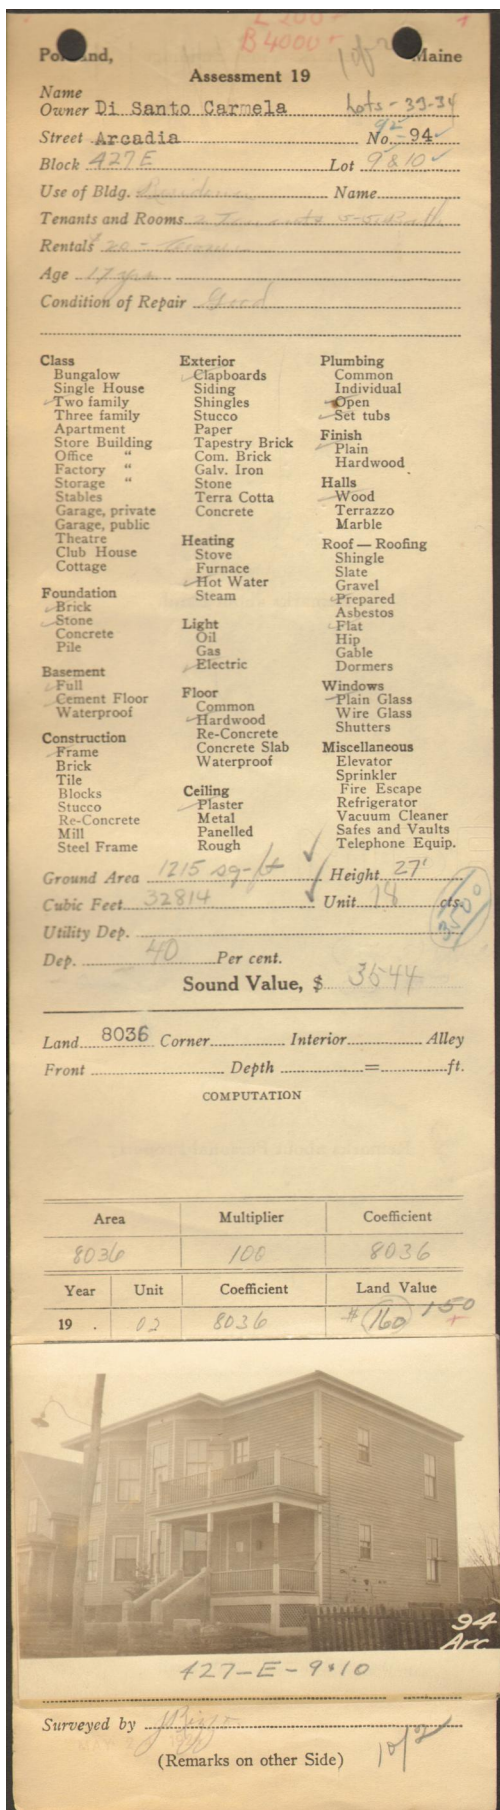 L 200 -
B 4000 -
1 of 2
Portland, Maine
Assessment 19
Name
Owner Di Santo Carmela Lots - 33-34
92
Street Arcadia No. - 94
Block 427 E Lot 9 & 10
Use of Bldg. Residence Name
Tenants and Rooms 2 Tenants 5-5 & Bath
Rentals $20 -
Age 17 yrs
Condition of Repair Good
Class
Bungalow
Single House
Two family
Three family
Apartment
Store Building
Office "
Factory "
Storage "
Stables
Garage, private
Garage, public
Theatre
Club House
Cottage
Foundation
Brick
Stone
Concrete
Pile
Basement
Full
Cement Floor
Waterproof
Construction
Frame
Brick
Tile
Blocks
Stucco
Re-Concrete
Mill
Steel Frame
Exterior
Clapboards
Siding
Shingles
Stucco
Paper
Tapestry Brick
Com. Brick
Galv. Iron
Stone
Terra Cotta
Concrete
Heating
Stove
Furnace
Hot Water
Steam
Light
Oil
Gas
Electric
Floor
Common
Hardwood
Re-Concrete
Concrete Slab
Waterproof
Ceiling
Plaster
Metal
Panelled
Rough
Plumbing
Common
Individual
Open
Set tubs
Finish
Plain
Hardwood
Halls
Wood
Terrazzo
Marble
Roof — Roofing
Shingle
Slate
Gravel
Prepared
Asbestos
Flat
Hip
Gable
Dormers
Windows
Plain Glass
Wire Glass
Shutters
Miscellaneous
Elevator
Sprinkler
Fire Escape
Refrigerator
Vacuum Cleaner
Safes and Vaults
Telephone Equip.
Ground Area 1215 sq-ft Height 27'
Cubic Feet 32814 Unit 18 cts.
3500
Utility Dep.
Dep. 40 Per cent.
Sound Value, $ 3544
Land 8036 Corner Interior Alley
Front Depth = ft.
COMPUTATION
Area Multiplier Coefficient
8036 100 8036
Year Unit Coefficient Land Value
19 . 02 8036 $ 160 150
94
Arc
427-E-9&10
Surveyed by
(Remarks on other Side) 1 of 2